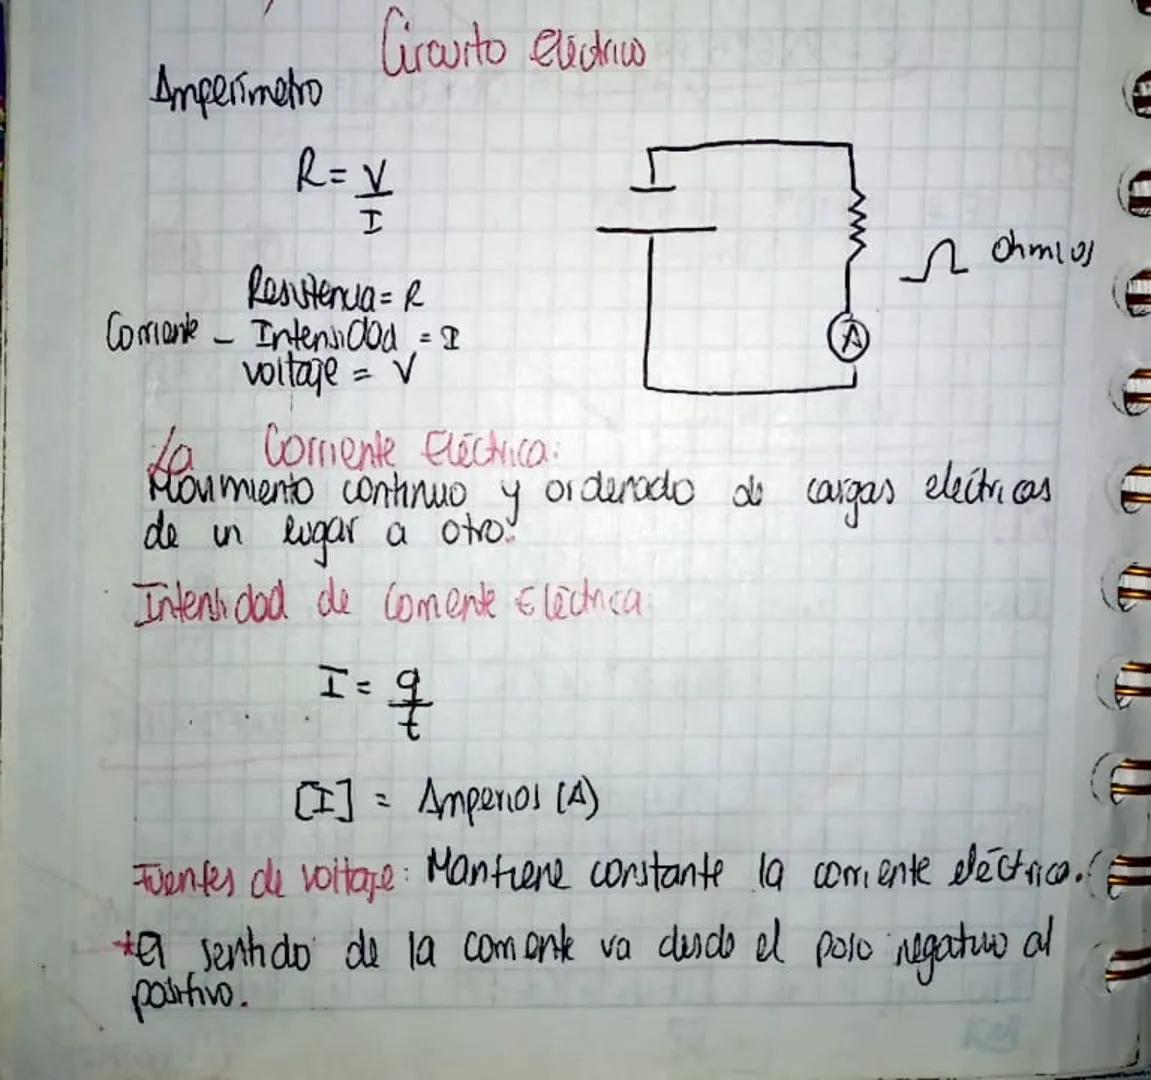 Circuito Eléctrico
Amperímetro
R = V
I
Ω Ohmios
Resistencia = R
Corriente - Intensidad = I
voltaje = V
A
La Corriente Eléctrica:
Movimiento continuo y ordenado de cargas eléctricas
de un lugar a otro.
Intensidad de Corriente Eléctrica
I = q
t
[I] = Amperios (A)
Fuentes de voltaje: Mantiene constante la corriente eléctrica.
*El sentido de la corriente va desde el polo negativo al
positivo.